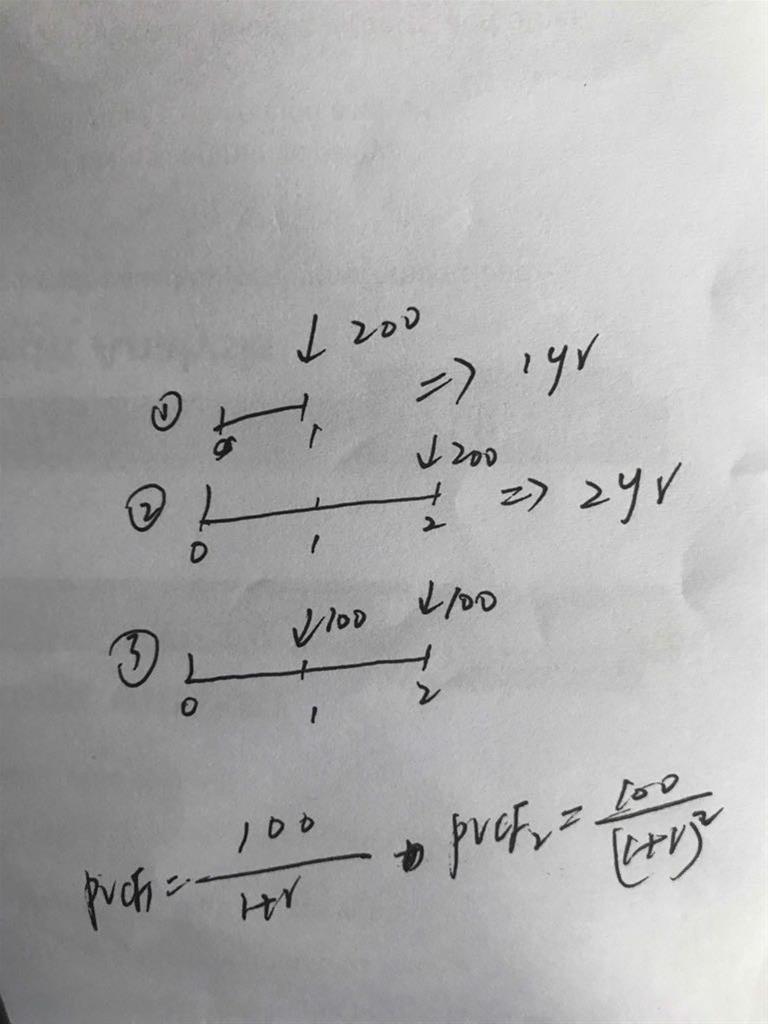 ↓ 200
① 0 1 => 1 yr
↓ 200
② 0 1 2 => 2 yr
↓ 100 ↓ 100
③ 0 1 2
PVCF1 = 100 / 1+r , PVCF2 = 100 / (1+r)²